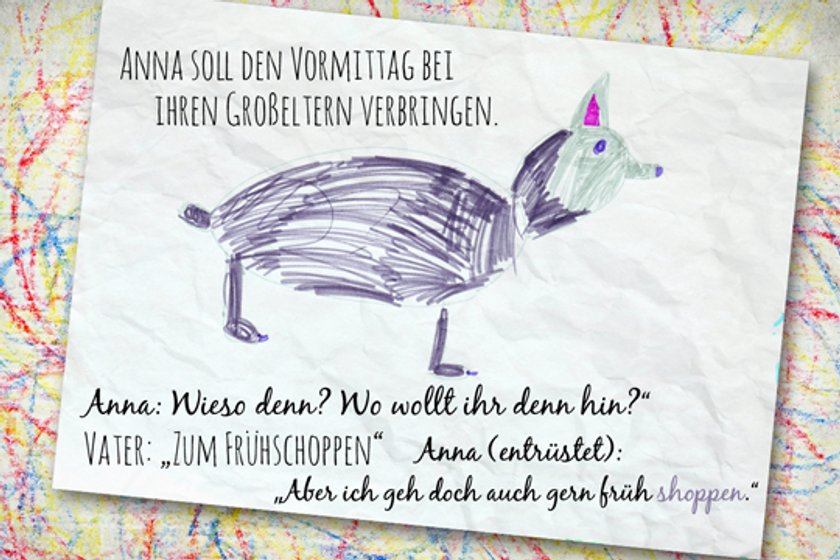 Anna soll den Vormittag bei
ihren Großeltern verbringen.
Anna: Wieso denn? Wo wollt ihr denn hin?“
Vater: „Zum Frühschoppen“ Anna (entrüstet):
„Aber ich geh doch auch gern früh shoppen.“